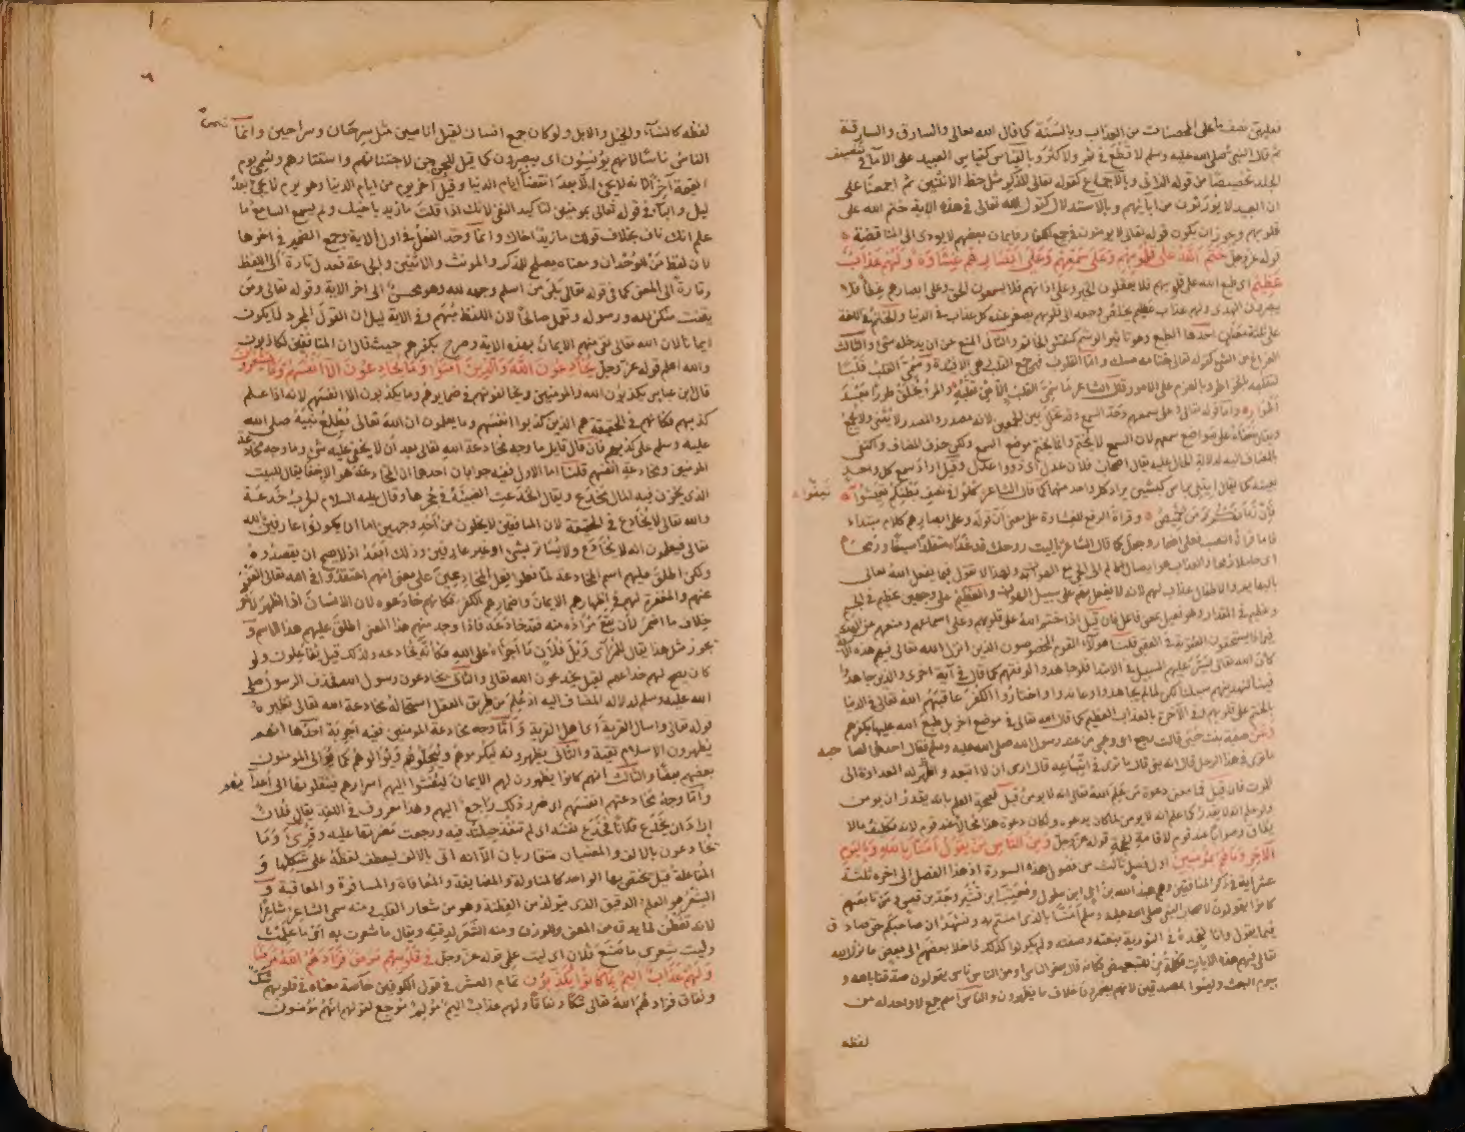 فعليهن نصف ما على المحصنات من العذاب وبالسنة كما قال الله تعالى والسارق والسارقة
ثم قال النبي صلى الله عليه وسلم لا قطع في ثمر ولا كثر وبالقياس كقياس العبيد على الاماء في تنصيف
الجلد تخصيصا من قوله الزاني وبالاجماع كقوله تعالى للذكر مثل حظ الانثيين ثم اجمعنا على
ان العبيد لا يورثون من ابائهم وبالاستدلال كقول الله تعالى في هذه الاية ختم الله على
قلوبهم وعوزان يكون قوله تعالى لا يومنون في جميع الكفار وايمان بعضهم لا يودي الى المناقضة
قوله عز وجل ختم الله على قلوبهم وعلى سمعهم وعلى ابصارهم غشاوة ولهم عذاب
عظيم اي طبع الله على قلوبهم فلا يعقلون الخير وعلى اذانهم فلا يسمعون الحق وعلى ابصارهم غطاء فلا
يبصرون الهدى ولهم عذاب عظيم
على ثلثة معان احدها الطبع وهو تاثير الوسم كنقش الخاتم والثاني المنع عن ان يدخله شئ والثالث
الفراغ من الشئ كقوله تعالى ختامه مسك واما القلوب فهي جمع القلب وهي الافئدة وسمي القلب قلبا
لتقلبه
اطوارا واما قوله تعالى وعلى سمعهم وحد السمع لانه مصدر والمصدر لا يثنى ولا يجمع
موضع السمع ولكن حذف المضاف واكتفى
بالمضاف اليه لدلالة الحال عليه يقال اصحاب فلان عدل اي ذوو عدل وقيل اراد سمع كل واحد
كما قال الشاعر كلوا في نصف بطنكم تعيشوا
فان زمانكم زمن خميص وقراة الرفع للغشاوة على معنى ان قوله وعلى ابصارهم كلام مبتدا
فاما قراة النصب فعلى اضمار وجعل كما قال الشاعر يا ليت زوجك قد غدا متقلدا سيفا ورمحا
اي حاملا رمحا والعذاب هو ايصال الالم الى الحي
بالبهايم والاطفال عذاب لهم لانه لا يفعل بهم على سبيل الهوان والعظيم على وجهين عظيم في الجسم
وعظيم في المقدار وهو فعيل بمعنى فاعل فان قيل اذا ختم الله على قلوبهم وعلى اسماعهم ومنعهم عن الهدى
فبماذا يستحقون العقوبة في العقبى قلنا هؤلاء القوم المخصوصون الذين انزل الله تعالى فيهم هذه الاية
كان الله تعالى يسر عليهم السبيل في الابتدا فلو جاهدوا لوفقهم كما قال في آية اخرى والذين جاهدوا
فينا لنهدينهم سبلنا لكن لما لم يجاهدوا وعاندوا واختاروا الكفر عاقبهم الله تعالى في الدنيا
بالختم على قلوبهم وفي الآخرة بالعذاب العظيم كما قال الله تعالى في موضع آخر بل طبع الله عليها بكفرهم
وعن صفية بنت حيي قالت رجع ابي وعمي من عند رسول الله صلى الله عليه وسلم فقال احدهما لصاحبه
ما ترى في هذا الرجل قال انه نبي قال ما ترى في اتباعه قال ارى ان لا اتبعه واظهر له العداوة الى
الموت فان قيل فما معنى دعوة من علم الله تعالى انه لا يومن قيل لصحة العلم بانه يقدر ان يومن
ولو علم انه لا يقدر كما علم انه لا يومن لما كان يدعوه ولكان دعوة هذا محالا عند قوم لانه تكليف ما لا
يطاق وصوابا عند قوم لاقامة الحجة قوله عز وجل ومن الناس من يقول امنا بالله وباليوم
الآخر وما هم بمومنين اول فصل ثالث من فصول هذه السورة اذ هذا الفصل الى آخره ثلثة
عشر اية في ذكر المنافقين وهم عبد الله بن ابي ابن سلول ومعتب ابن قشير وجد بن قيس ومن تابعهم
كانوا يقولون لاصحاب النبي صلى الله عليه وسلم امنا بالذي امنتم به ونشهد ان صاحبكم حق صادق
فيما يقول وانا نجده في التورية بنعته وصفته ولم يكونوا كذلك اذا خلا بعضهم الى بعض فانزل الله
تعالى فيهم هذه الايات كانه قال بعض الناس او من الناس ناس يقولون صدقنا بالله و
بيوم البعث وليسوا بمصدقين لانهم يضمرون خلاف ما يظهرون والناس اسم جمع لا واحد له من
لفظه
لفظه كالنساء والخيل والابل ولو كان جمع انسان لقيل اناسين مثل سرحان وسراحين وانما سمي
الناس ناسا لانهم يونسون اي يبصرون كما قيل للجن جن لاجتنانهم واستتارهم وسمي يوم
القيمة آخرا لانه لا يجئ الا بعد انقضا ايام الدنيا وقيل آخر يوم من ايام الدنيا وهو يوم لا يجئ بعد
ليل والباء في قوله تعالى بمومنين لتاكيد النفي لانك اذا قلت ما زيد باخيك ولم يسمع السامع ما
علم انك ناف بخلاف قولك ما زيد اخاك وانما وحد الفعل في اول الاية وجمع الضمير في آخرها
لان لفظ من للوحدان ومعناه يصلح للمذكر والمونث والاثنين والجماعة فعدل تارة الى اللفظ
وتارة الى المعنى كما في قوله تعالى بلى من اسلم وجهه لله وهو محسن الى اخر الاية وقوله تعالى ومن
يقنت منكن لله ورسوله وتعمل صالحا لان اللفظ مبهم وفي الاية دليل ان القول المجرد لا يكون
ايمانا لان الله تعالى نفى منهم الايمان بهذه الاية وصرح بكفرهم حيث قال ان المنافقين لكاذبون
والله اعلم قوله عز وجل يخادعون الله والذين آمنوا وما يخادعون الا انفسهم وما يشعرون
قال ابن عباس يكذبون الله والمومنين ويخالفونهم في ضمايرهم وما يكذبون الا انفسهم لانه اذا علم
كذبهم فكانهم في الحقيقة هم الذين كذبوا انفسهم وما يعلمون ان الله تعالى يطلع نبيه صلى الله
عليه وسلم على كذبهم فان قال قايل ما وجه مخادعة الله تعالى بعد ان لا يخفى عليه شئ وما وجه مخادعة
المومنين ومخادعة انفسهم قلنا اما الاول ففيه جوابان احدهما ان المخادعة هو الاخفا يقال للبيت
الذي يخزن فيه المال مخدع ويقال انخدعت الضبة في جحرها وقال عليه السلام الحرب خدعة
والله تعالى لا يخادع في الحقيقة لان المنافقين لا يخلون من احد وجهين اما ان يكونوا عارفين بالله
تعالى فيعلمون انه لا يخادع ولا يساتر بشئ او غير عارفين وذلك ابعد اذ لا يصح ان يقصدوه
ولكن اطلق عليهم اسم المخادعة لما فعلوا فعل المخادعين على معنى انهم اعتقدوا في الله تعالى العفو
عنهم والمغفرة لهم في اظهارهم الايمان واضمارهم الكفر فكانهم خادعوه لان الانسان اذا اظهر لآخر
خلاف ما اضمر لان يقع مراده منه فقد خادعه فاذا وجد منهم هذا المعنى اطلق عليهم هذا الاسم و
يجوز مثل هذا يقال للمرائي ويل فلان ما اجراه على الله فكانه مخادعه ولذلك قيل يفاعلون ولو
كان يصح لهم خداعهم لقيل يخدعون الله تعالى والثاني يخادعون رسول الله فحذف الرسول صلى
الله عليه وسلم لدلالة المضاف اليه اذ علم من طريق العقل استحالة مخادعة الله تعالى نظيره
قوله تعالى واسال القرية اي اهل القرية واما وجه مخادعة المومنين ففيه اجوبة احدها انهم
يظهرون الاسلام تقية والثاني يظهرونه ليكرموهم ويبجلوهم ويوالوهم كما يوالي المومنون
بعضهم بعضا والثالث انهم كانوا يظهرون لهم الايمان ليفشوا اليهم اسرارهم فينقلونها الى اعدائهم
واما وجه مخادعتهم انفسهم اي ضرر ذلك راجع اليهم وهذا معروف في اللغة يقال فلان
اراد ان يخدع فلانا فخدع نفسه اي لم تنفذ حيلته فيه ورجعت مضرتها عليه وقرئ وما
يخادعون بالالف والمعنيان متقاربان الا انه اتى بالالف ليعطف لفظه على شكلها و
المفاعلة قيل يختص بها الواحد كالمناولة والمضايفة والمعافاة والمسافرة والمعاقبة و
الشعر هو العلم الدقيق الذي يتولد من الفطنة وهو من شعار القلب ومنه سمي الشاعر شاعرا
لانه تفطن لما يدق من المعنى والوزن ومنه الشعر لدقته ويقال ما شعرت به اي ما علمت
وليت شعري ما صنع فلان اي ليت علمي قوله عز وجل في قلوبهم مرض فزادهم الله مرضا
ولهم عذاب اليم بما كانوا يكذبون تمام العشر في قول الكوفيين خاصة معناه في قلوبهم شك
ونفاق فزادهم الله تعالى شكا ونفاقا ولهم عذاب اليم مولم موجع لقولهم انهم مومنون